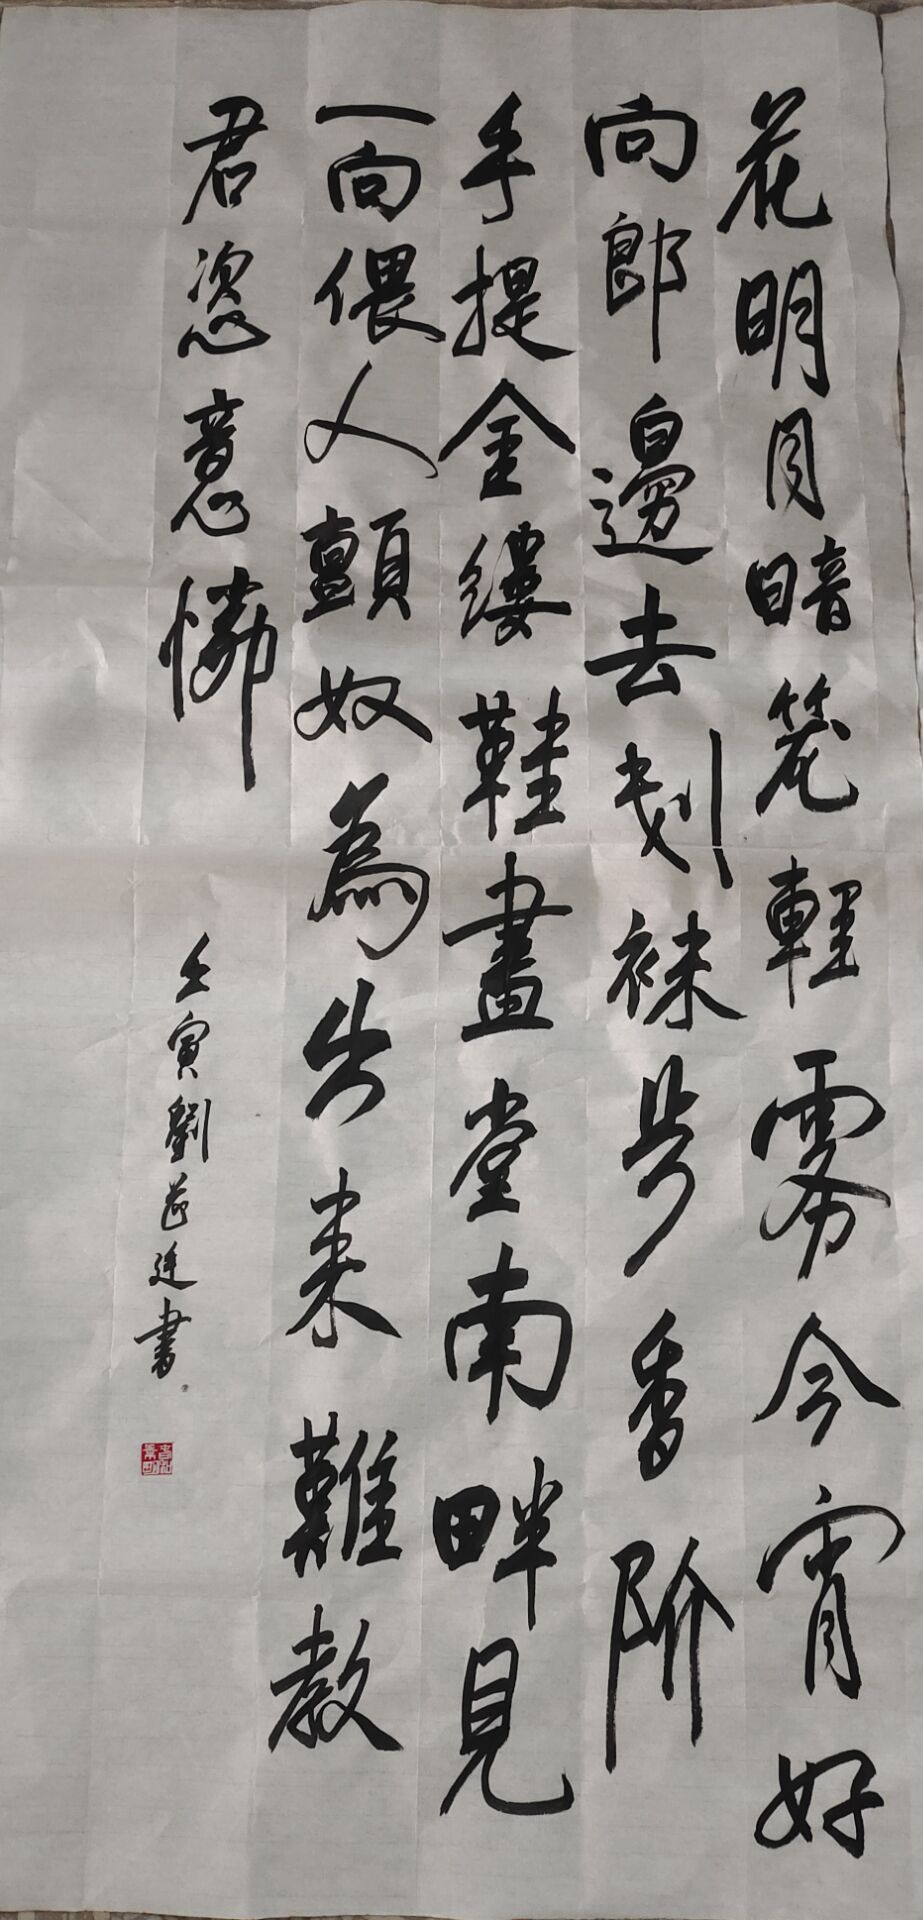 花明月暗笼輕雾今宵好
向郎邊去刬袜步香阶
手提金缕鞋畫堂南畔見
一向偎人顫奴為出来難教
君恣意憐
壬寅劉益廷書